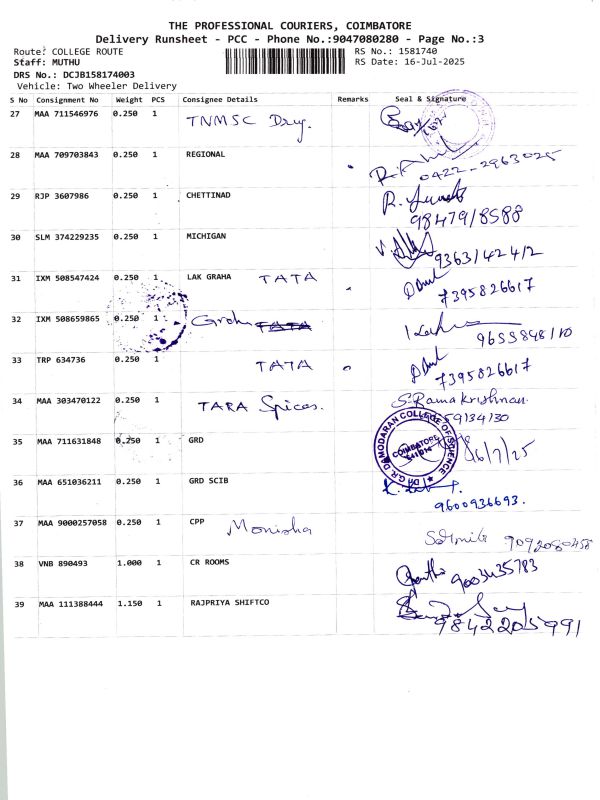 THE PROFESSIONAL COURIERS, COIMBATORE
Delivery Runsheet - PCC - Phone No.:9047080280 - Page No.:3
Route: COLLEGE ROUTE RS No.: 1581740
Staff: MUTHU RS Date: 16-Jul-2025
DRS No.: DCJB158174003
Vehicle: Two Wheeler Delivery
S No Consignment No Weight PCS Consignee Details Remarks Seal & Signature
27 MAA 711546976 0.250 1 TNMSC Dry.
28 MAA 709703843 0.250 1 REGIONAL
0422-2963025
29 RJP 3607986 0.250 1 CHETTINAD
98479/8588
30 SLM 374229235 0.250 1 MICHIGAN
9363142412
31 IXM 508547424 0.250 1 LAK GRAHA TATA
7395826617
32 IXM 508659865 0.250 1 TATA
9655848110
33 TRP 634736 0.250 1 TATA
7395826617
34 MAA 303470122 0.250 1 TARA Spices. S. Ramakrishnan
59134130
35 MAA 711631848 0.250 1 GRD 16/7/25
DR. G.R. DAMODARAN COLLEGE OF SCIENCE
COIMBATORE
641 014
36 MAA 651036211 0.250 1 GRD SCIB
9600936693.
37 MAA 9000257058 0.250 1 CPP Monisha 9092080458
38 VNB 890493 1.000 1 CR ROOMS 9003435783
39 MAA 111388444 1.150 1 RAJPRIYA SHIFTCO
9842205991